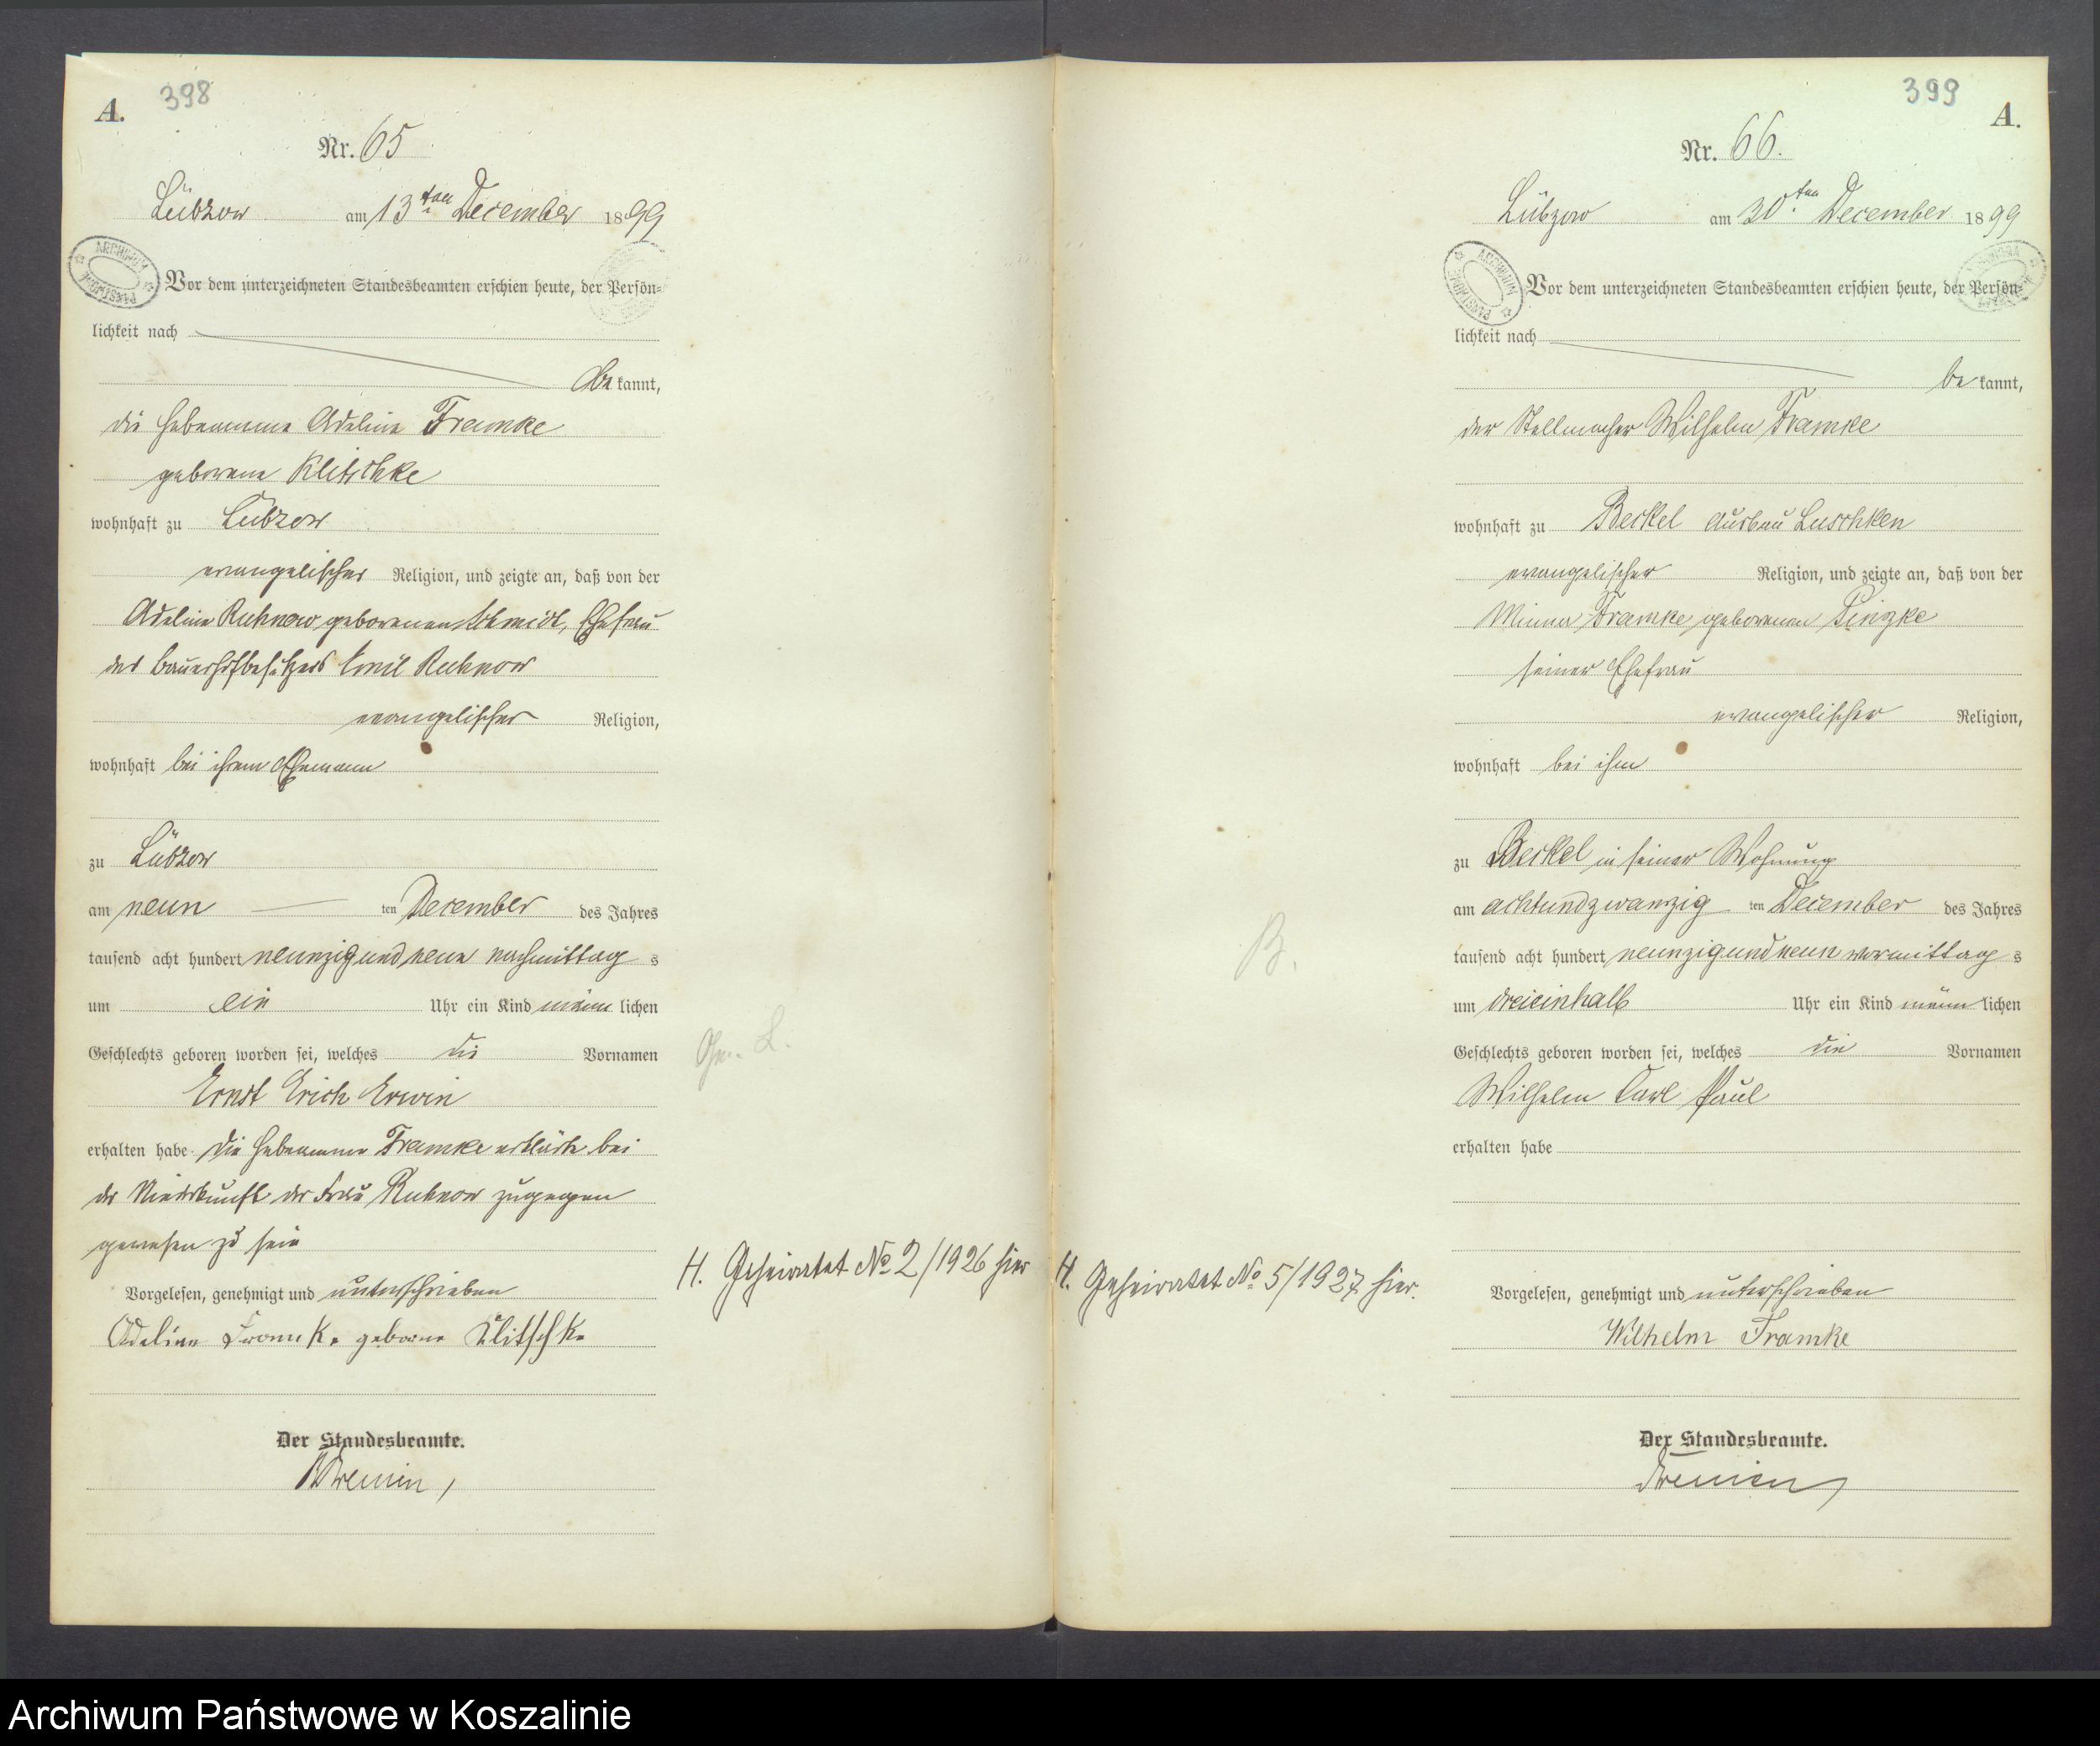 A.
398
Nr. 65
Lübzow am 13ten December 1899
ARCHIWUM PAŃSTWOWE
Vor dem unterzeichneten Standesbeamten erschien heute, der Persön=
lichkeit nach
be kannt,
die Hebamme Adeline Framke
geborene Klitschke
wohnhaft zu Lübzow
evangelischer Religion, und zeigte an, daß von der
Adeline Ruhnow geborenen Schmidt, Ehefrau
des Bauerhofbesitzers Emil Ruhnow
evangelischer Religion,
wohnhaft bei ihrem Ehemann
zu Lübzow
am neun ten December des Jahres
tausend acht hundert neunzigundneun nachmittag s
um ein Uhr ein Kind männ lichen
Geschlechts geboren worden sei, welches die Vornamen
Ernst Erich Erwin
erhalten habe. Die Hebamme Framke erklärte bei
der Niederkunft der Frau Ruhnow zugegen
gewesen zu sein
Vorgelesen, genehmigt und unterschrieben
Adeline Framke geborne Klitschke
Der Standesbeamte.
L.
H. Geheiratet No 2/1926 hier
399
A.
Nr. 66.
Lübzow am 30.ten December 1899
ARCHIWUM PAŃSTWOWE
Vor dem unterzeichneten Standesbeamten erschien heute, der Persön=
lichkeit nach
be kannt,
der Stellmacher Wilhelm Framke
wohnhaft zu Beckel Ausbau Luschken
evangelischer Religion, und zeigte an, daß von der
Minna Framke geborenen Pinzke
seiner Ehefrau
evangelischer Religion,
wohnhaft bei ihm
zu Beckel in seiner Wohnung
am achtundzwanzig ten December des Jahres
tausend acht hundert neunzigundneun vormittag s
um dreieinhalb Uhr ein Kind männ lichen
Geschlechts geboren worden sei, welches die Vornamen
Wilhelm Carl Paul
erhalten habe
Vorgelesen, genehmigt und unterschrieben
Wilhelm Framke
Der Standesbeamte.
B.
H. Geheiratet No. 5/1927 hier.
Archiwum Państwowe w Koszalinie